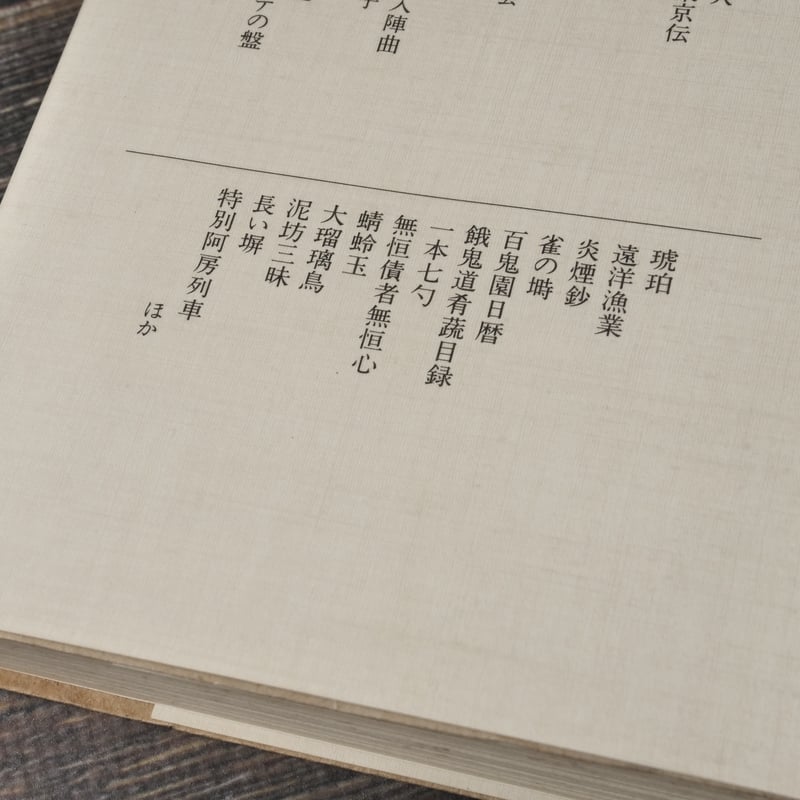 京伝
入陣曲
テの盤
琥珀
遠洋漁業
炎煙鈔
雀の塒
百鬼園日暦
餓鬼道肴蔬目録
一本七勺
無恒債者無恒心
蜻蛉玉
大瑠璃鳥
泥坊三昧
長い塀
特別阿房列車
ほか